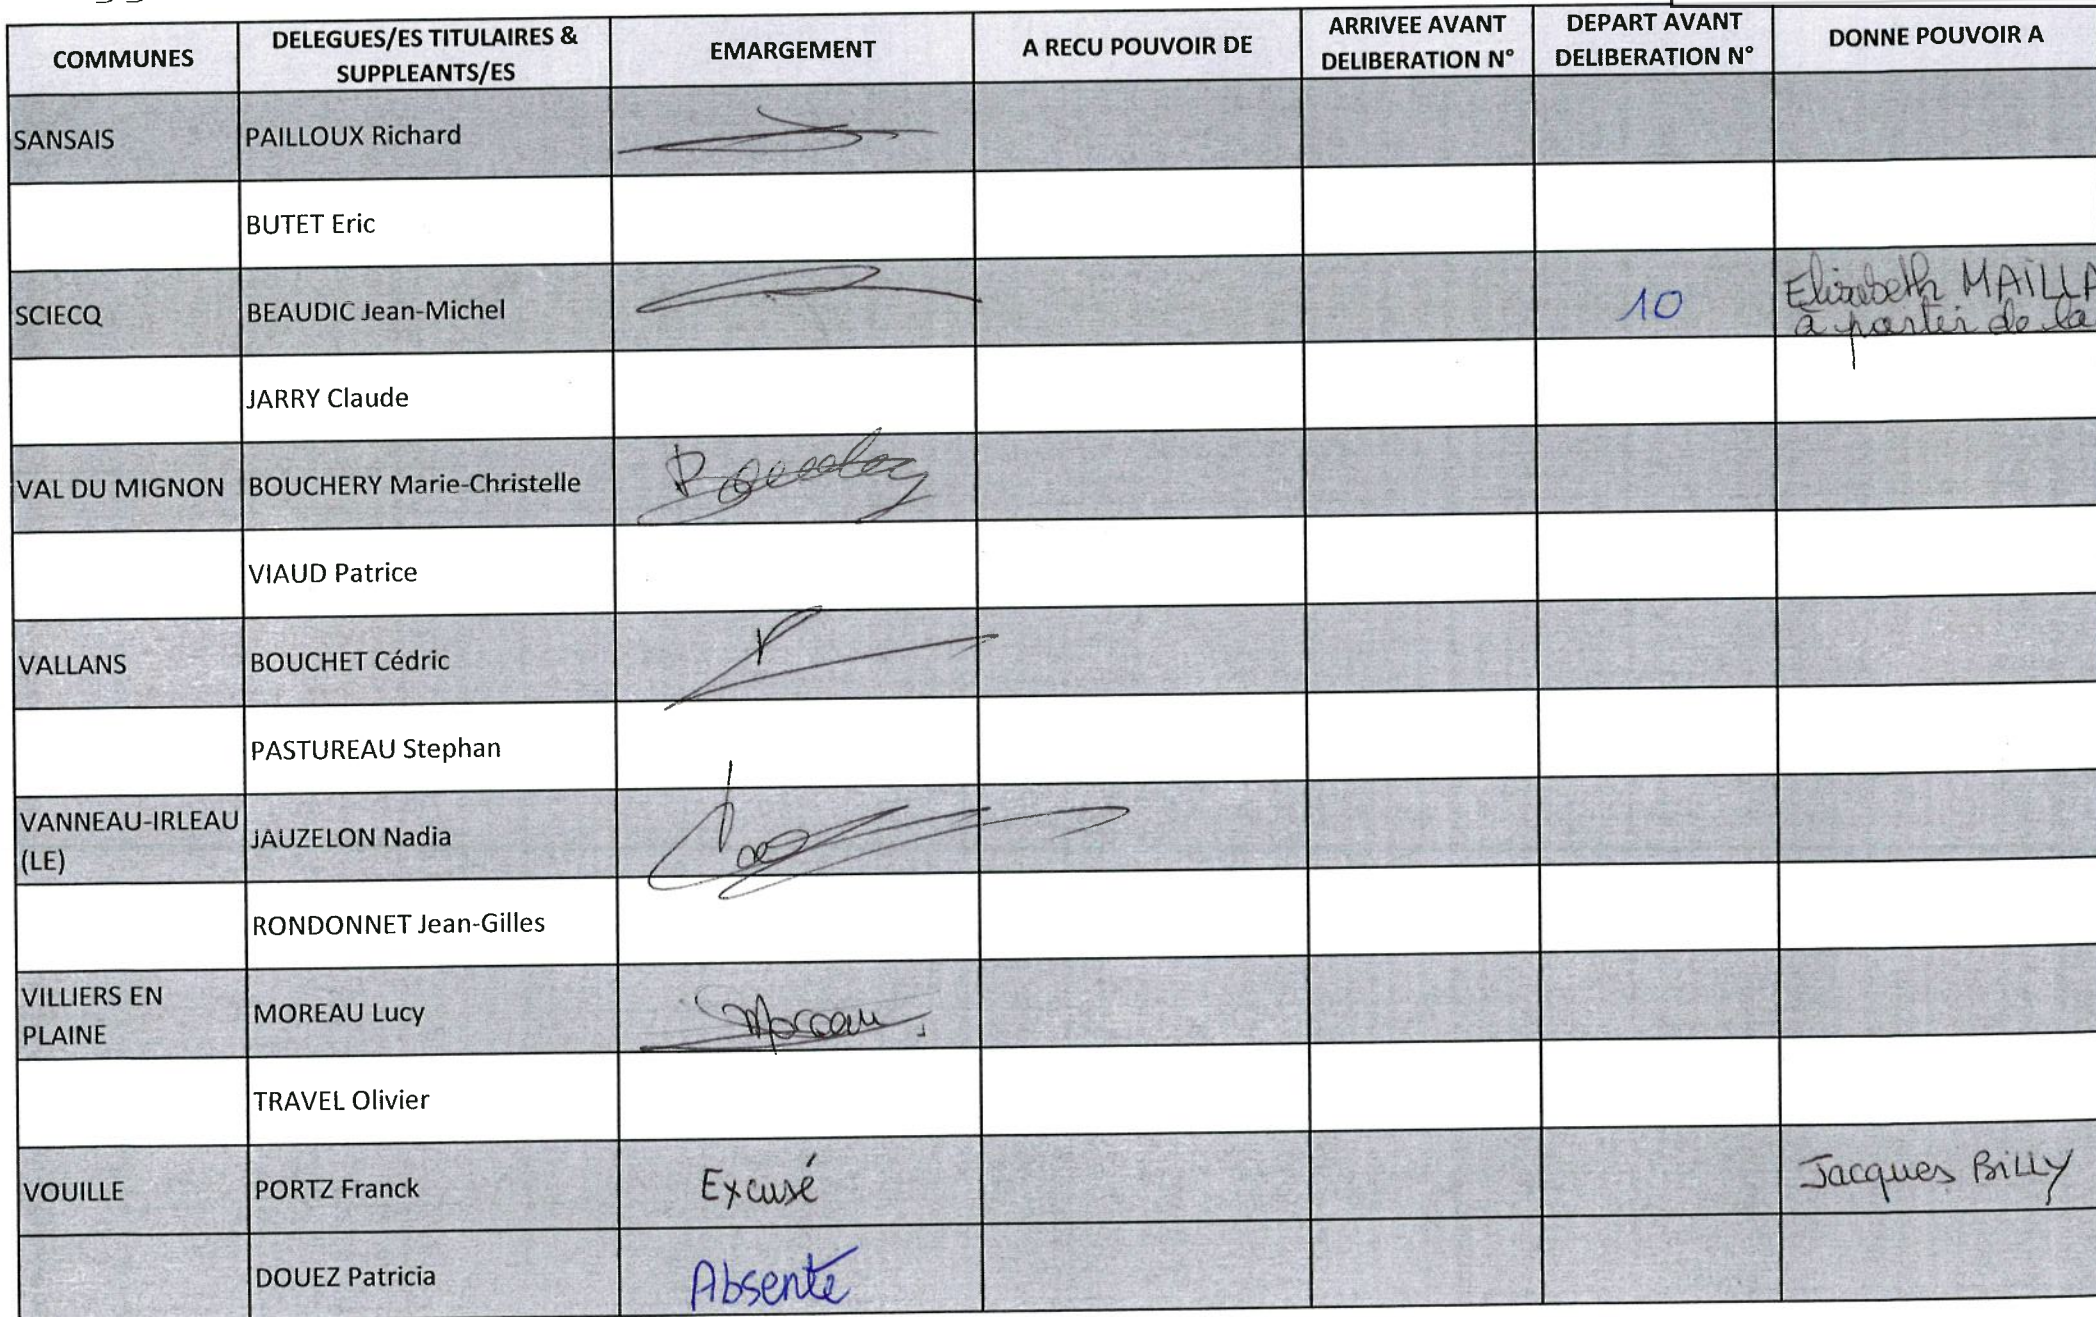 COMMUNES
DELEGUES/ES TITULAIRES &
SUPPLEANTS/ES
EMARGEMENT
A RECU POUVOIR DE
ARRIVEE AVANT
DELIBERATION N°
DEPART AVANT
DELIBERATION N°
DONNE POUVOIR A
SANSAIS
PAILLOUX Richard
BUTET Eric
SCIECQ
BEAUDIC Jean-Michel
10
Elisabeth MAILLA
à partir de la
JARRY Claude
VAL DU MIGNON
BOUCHERY Marie-Christelle
VIAUD Patrice
VALLANS
BOUCHET Cédric
PASTUREAU Stephan
VANNEAU-IRLEAU
(LE)
JAUZELON Nadia
RONDONNET Jean-Gilles
VILLIERS EN
PLAINE
MOREAU Lucy
Moreau
TRAVEL Olivier
VOUILLE
PORTZ Franck
Excusé
Jacques BILLY
DOUEZ Patricia
Absente